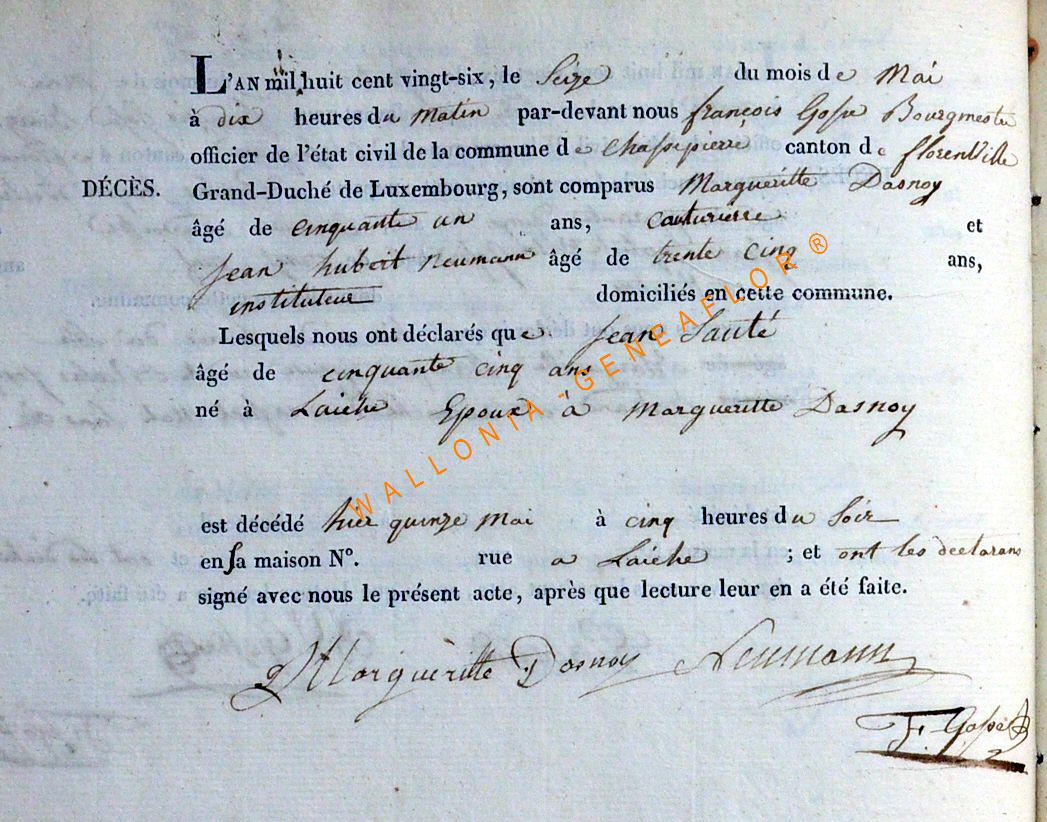 L'AN mil huit cent vingt-six, le Seize du mois de Mai
à dix heures du matin par-devant nous françois Gofse Bourgmestre
officier de l'état civil de la commune de chassepierre canton de florenville
DÉCÈS. Grand-Duché de Luxembourg, sont comparus Margueritte Dasnoy
âgé de cinquante un ans, couturierre et
Jean hubert Neumann âgé de trente cinq ans,
instituteur domiciliés en cette commune.
Lesquels nous ont déclarés que Jean Sauté
âgé de cinquante cinq ans
né à Laiche Epoux à Margueritte Dasnoy
est décédé hier quinze Mai à cinq heures du Soir
en sa maison N°. rue a Laiche ; et ont les declarans
signé avec nous le présent acte, après que lecture leur en a été faite.
Margueritte Dasnoy Neumann
F. Gofse
WALLONIA - GENEAFLOR ®